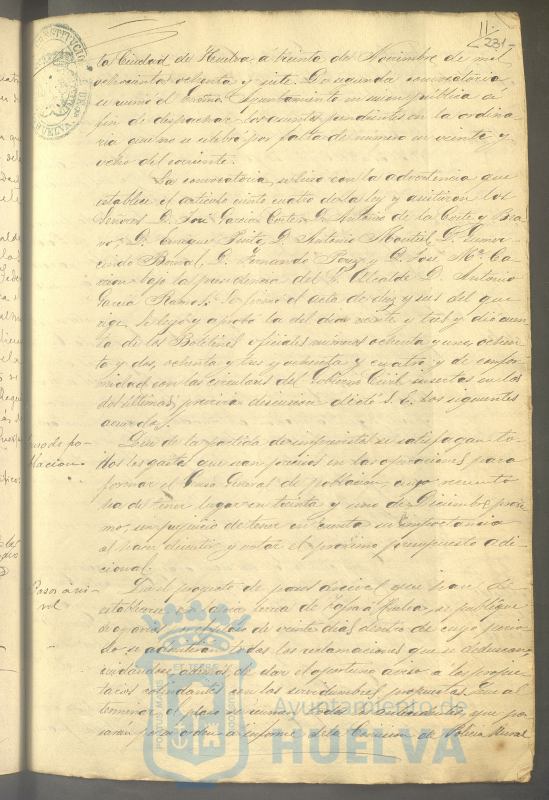 11.
231-
la Ciudad de Huelva á treinta de Noviembre de mil
ochocientos ochenta y siete. De segunda convocatoria
se reunió el Excmo. Ayuntamiento en sesion pública á
fin de despachar los asuntos pendientes en la ordina-
ria que no se celebró por falta de número en veinte y
ocho del corriente.
La convocatoria se hizo con la advertencia que
establece el artículo ciento cuatro de la ley y asistieron los
Señores D. José García Cortes, D. Antonio de la Corte y Bra-
vo, D. Enrique Pinto, D. Antonio Montiel, D. Gumer-
cindo Bernal, D. Fernando Perez y D. José Mª. Ca-
bajo la presidencia del Sr. Alcalde D. Antonio
García Ramos. Se firmó el acta de diez y seis del que
rige, se leyó y aprobó la del dia veinte y tres y dio cuenta
de los Boletines oficiales números ochenta y uno, ochen-
ta y dos, ochenta y tres y ochenta y cuatro y de confor-
midad con las circulares del Gobierno Civil insertas en los
dos últimos, previa discusion dictó S. E. los siguientes
acuerdos.
Censo de po-
blacion
Que de la partida de imprevistos se satisfagan to-
dos los gastos que sean precisos en las operaciones para
formar el Censo General de poblacion, cuyo recuento
ha de tener lugar en treinta y uno de Diciembre proxi-
mo, sin perjuicio de tener en cuenta su importancia
al hacer discutir y votar el próximo presupuesto adi-
cional.
Pasos á ni-
vel
Que el proyecto de pasos á nivel que han de
establecerse en la línea de Zafra á Huelva, se publique
de veinte dias dentro de cuyo perio-
do se admitirán todas las reclamaciones que se deduzcan
además de dar el oportuno aviso a los propie-
tarios colindantes con las servidumbres propuestas. Que al
terminar el plazo se
á informe de la Comision de Policia Rural
Ayuntamiento de
HUELVA